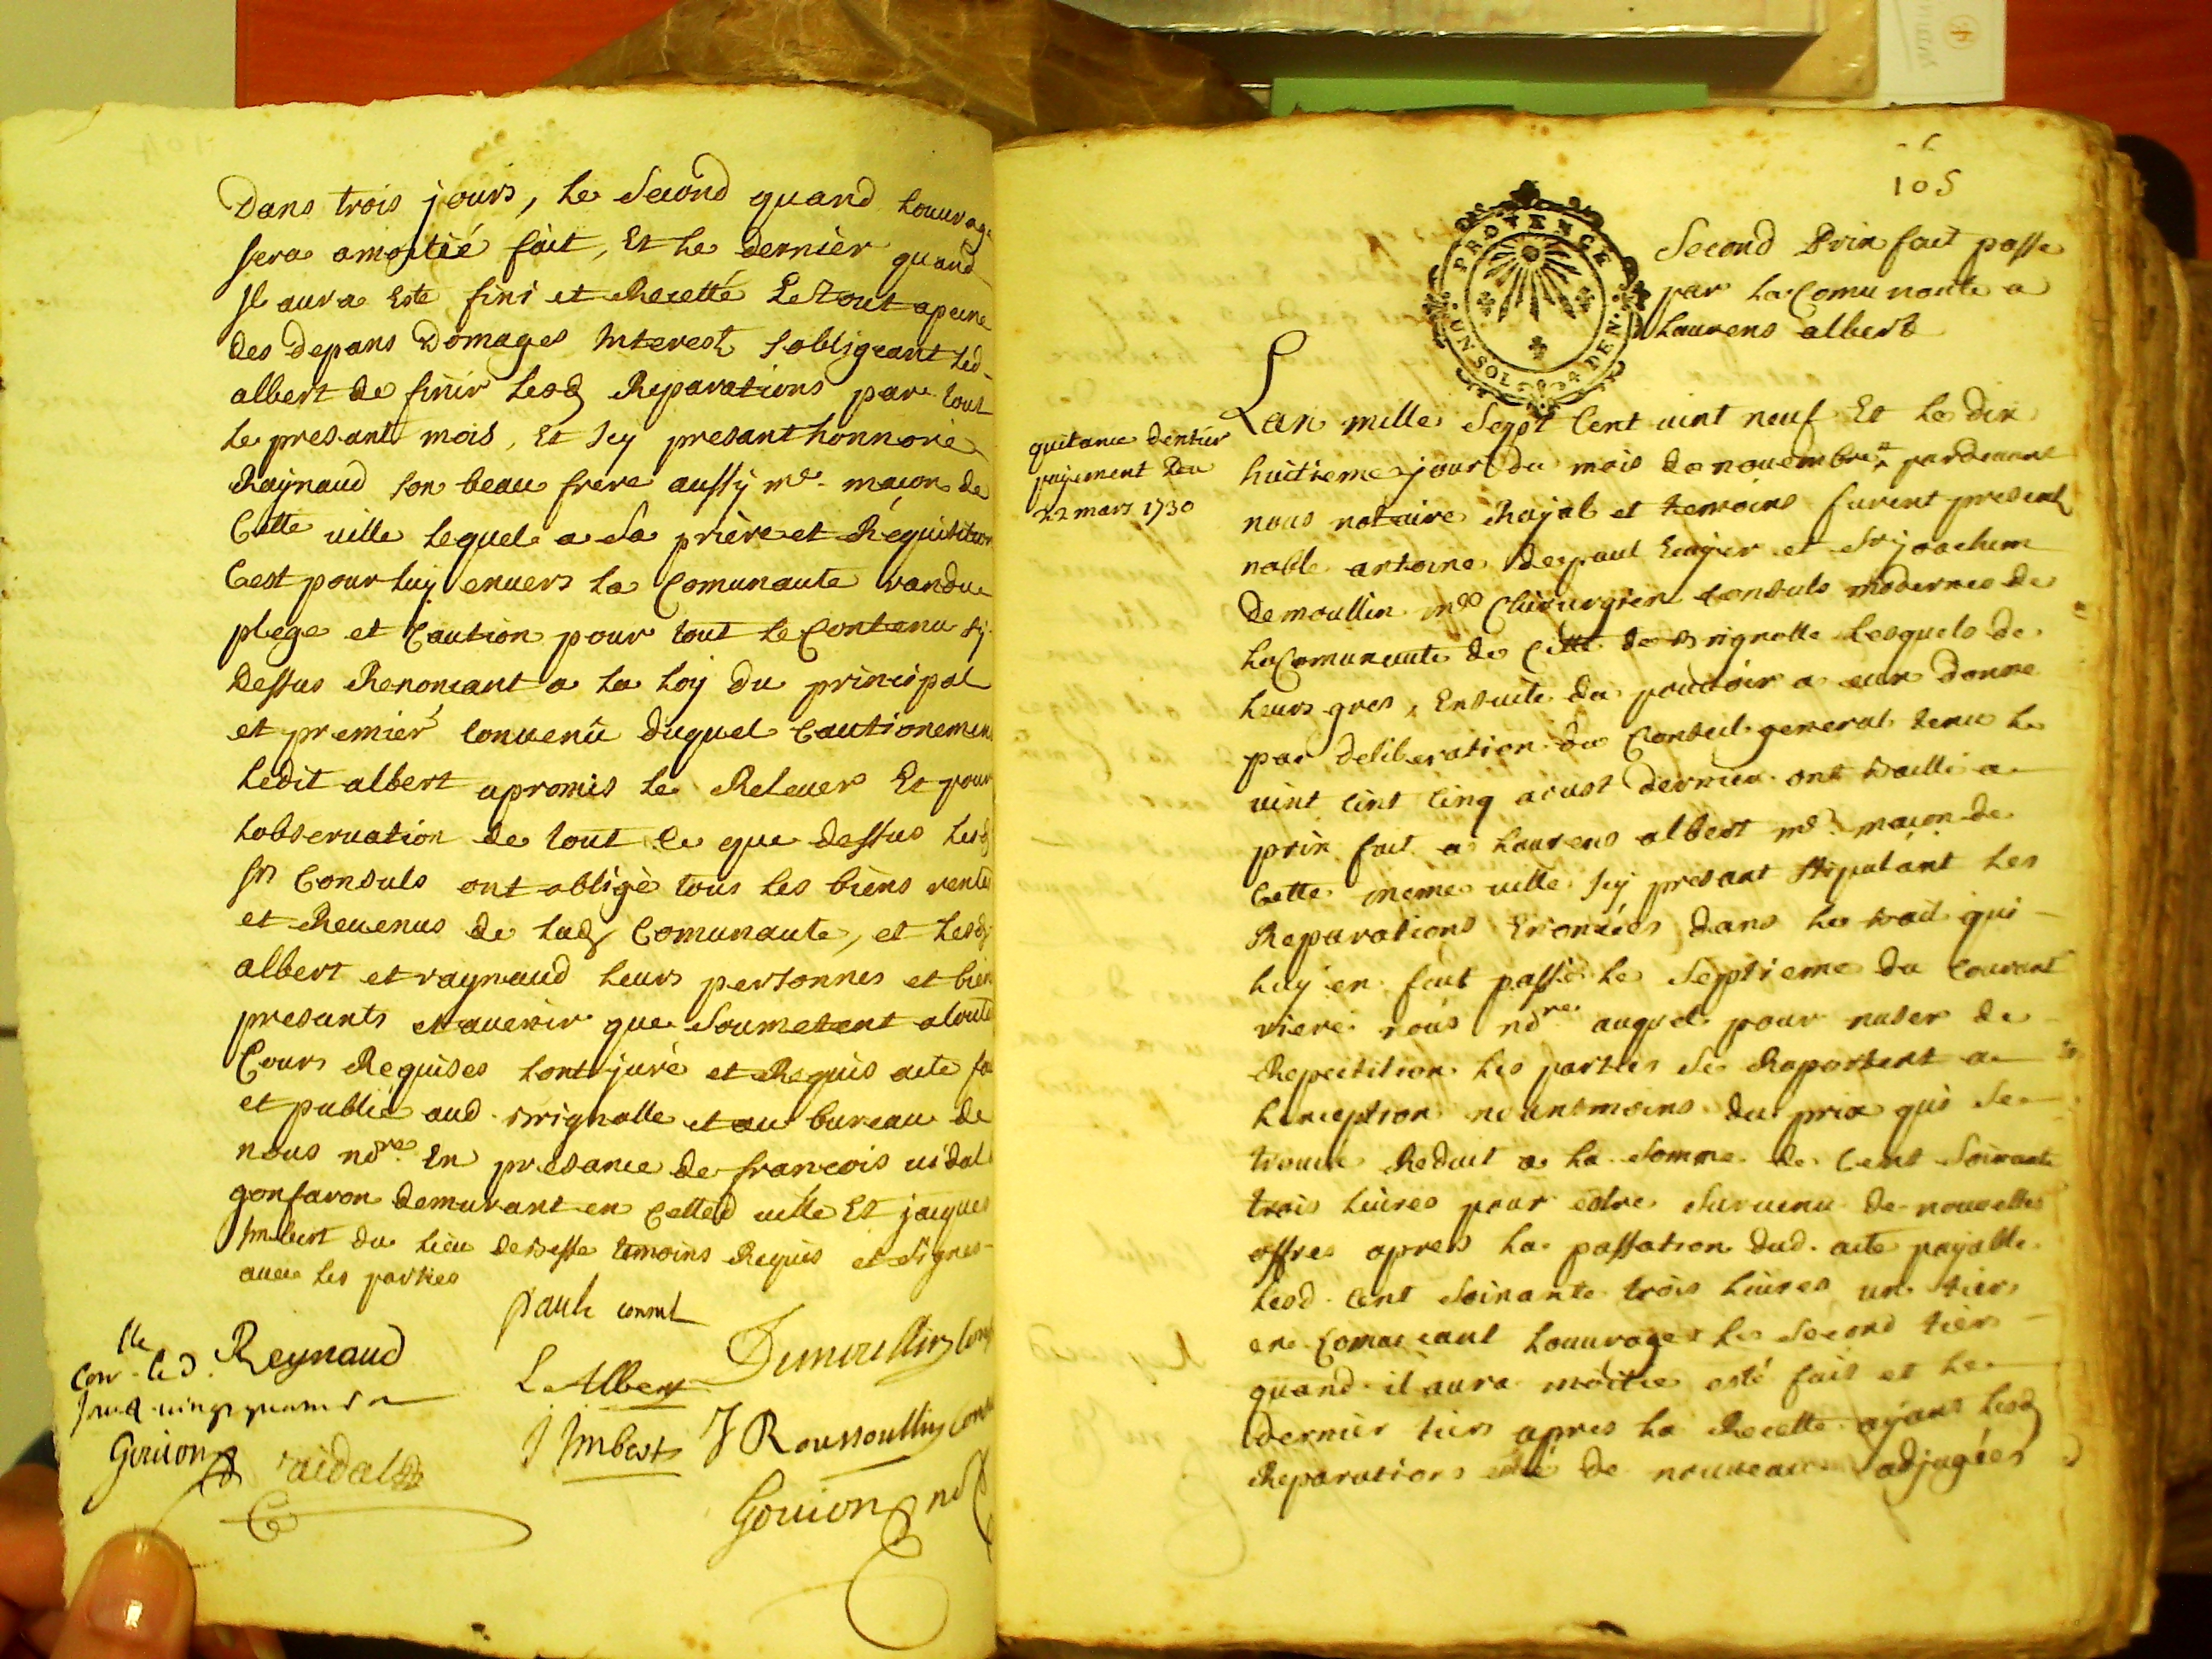 Dans trois jours, le second quand louurage
sera amoitié fait, Et le dernier quand
Jl aura Este fini et Recetté Le Tout apeine
des depans Domages Interest sobligeant led.
albert de finir lesd Reparations par tout
le presant mois, Et Jcy presant honnoré
Raynaud son beau frere aussy me. maçon de
Cette ville lequel a sa priere et Requisition
Cest pour luy enuers la Comunaute randu
plege et Caution pour tout le Contenu sy
dessus Renonçant a la loy du principal
et premier conuenû duquel Cautionement
ledit albert apromis le Releuer Et pour
lobseruation de tout ce que dessus lesd
srs Consuls ont obligè tous les biens rentes
et Reuenus de lad Comunaute, et lesd
albert et raynaud leurs personnes et biens
presants et auenir que Soumetent atoutes
Cours Requises Lont juré et Requis acte fait
et publié aud. Brignolle et au bureau de
nous nore. En presance de francois uidal
gonfaron demurant en Cetted uille Et jacques
Imbert du lieu debesse temoins Requis et signes
auec les parties
paul consul
lle
Con. led. Reynaud
Demoullin Cons
L Albert
Gouion
uidal
J Imbert
J Roussoullin
Gouion no
105
PROVENCE
UN SOL 4 DEN.
Second Prix fait passe
par la Comunaute a
Laurens albert
quitance dentier
payement du
22 mars 1730
Lan mille Sept Cent uint neuf Et le dix
huitieme jour du mois de nouembre pardeuant
nous notaire Royal et temoins furent presents
noble antoine depaul Ecuyer et Sr joachim
demoullin me Chirurgien Consuls modernes de
la Comunaute de Cette de Brignolle lesquels de
leurs gres, Ensuite du pouuoir a eux donne
par deliberation du Conseil general tenu le
uint cinq aoust dernier ont bailli a
prix fait a Laurens albert me. maçon de
Cette meme uille Jcy presant stipulant les
Reparations Enoncées dans le bail qui
luy en fut passé le Septieme du Courant
riere nous nore auquel pour nuser de
Repetition les parties se Raportent a
lexception neantmoins du prix qui se
trouue Reduit a la somme de Cent soixante
trois liures pour estre suruenu de nouuelles
offres apres la passation dud. acte payable
lesd. cent soixante trois liures un tiers
en Comançant louurage le second tiers
quand il aura moitie esté fait et le
dernier tiers apres la Recette ayant lesd
Reparations esté de nouueau adjugées